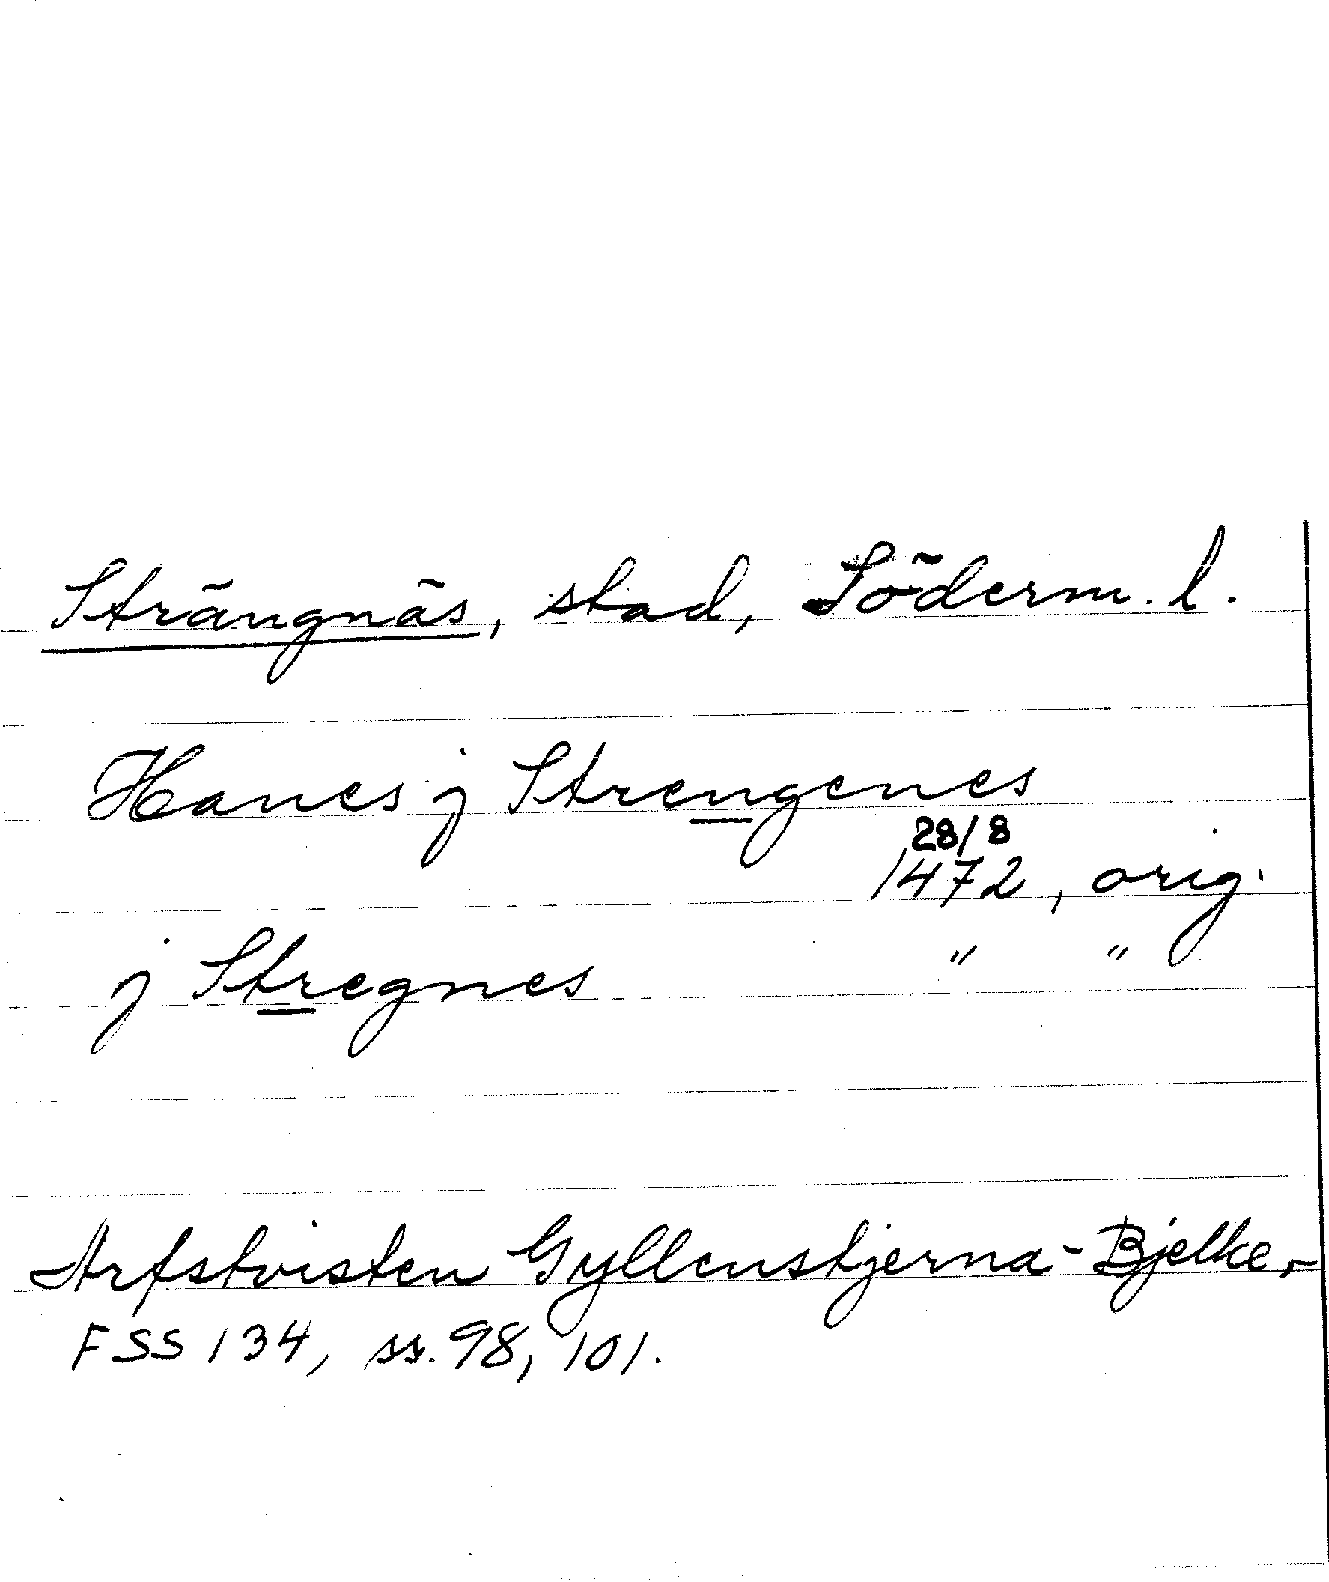 Strängnäs, stad, Söderm. l.
Hanes j Strengenes
28/8
1472, orig.
j Stregnes " "
Arfstvisten Gyllenstjerna-Bjelke,
FSS 134, ss. 98, 101.